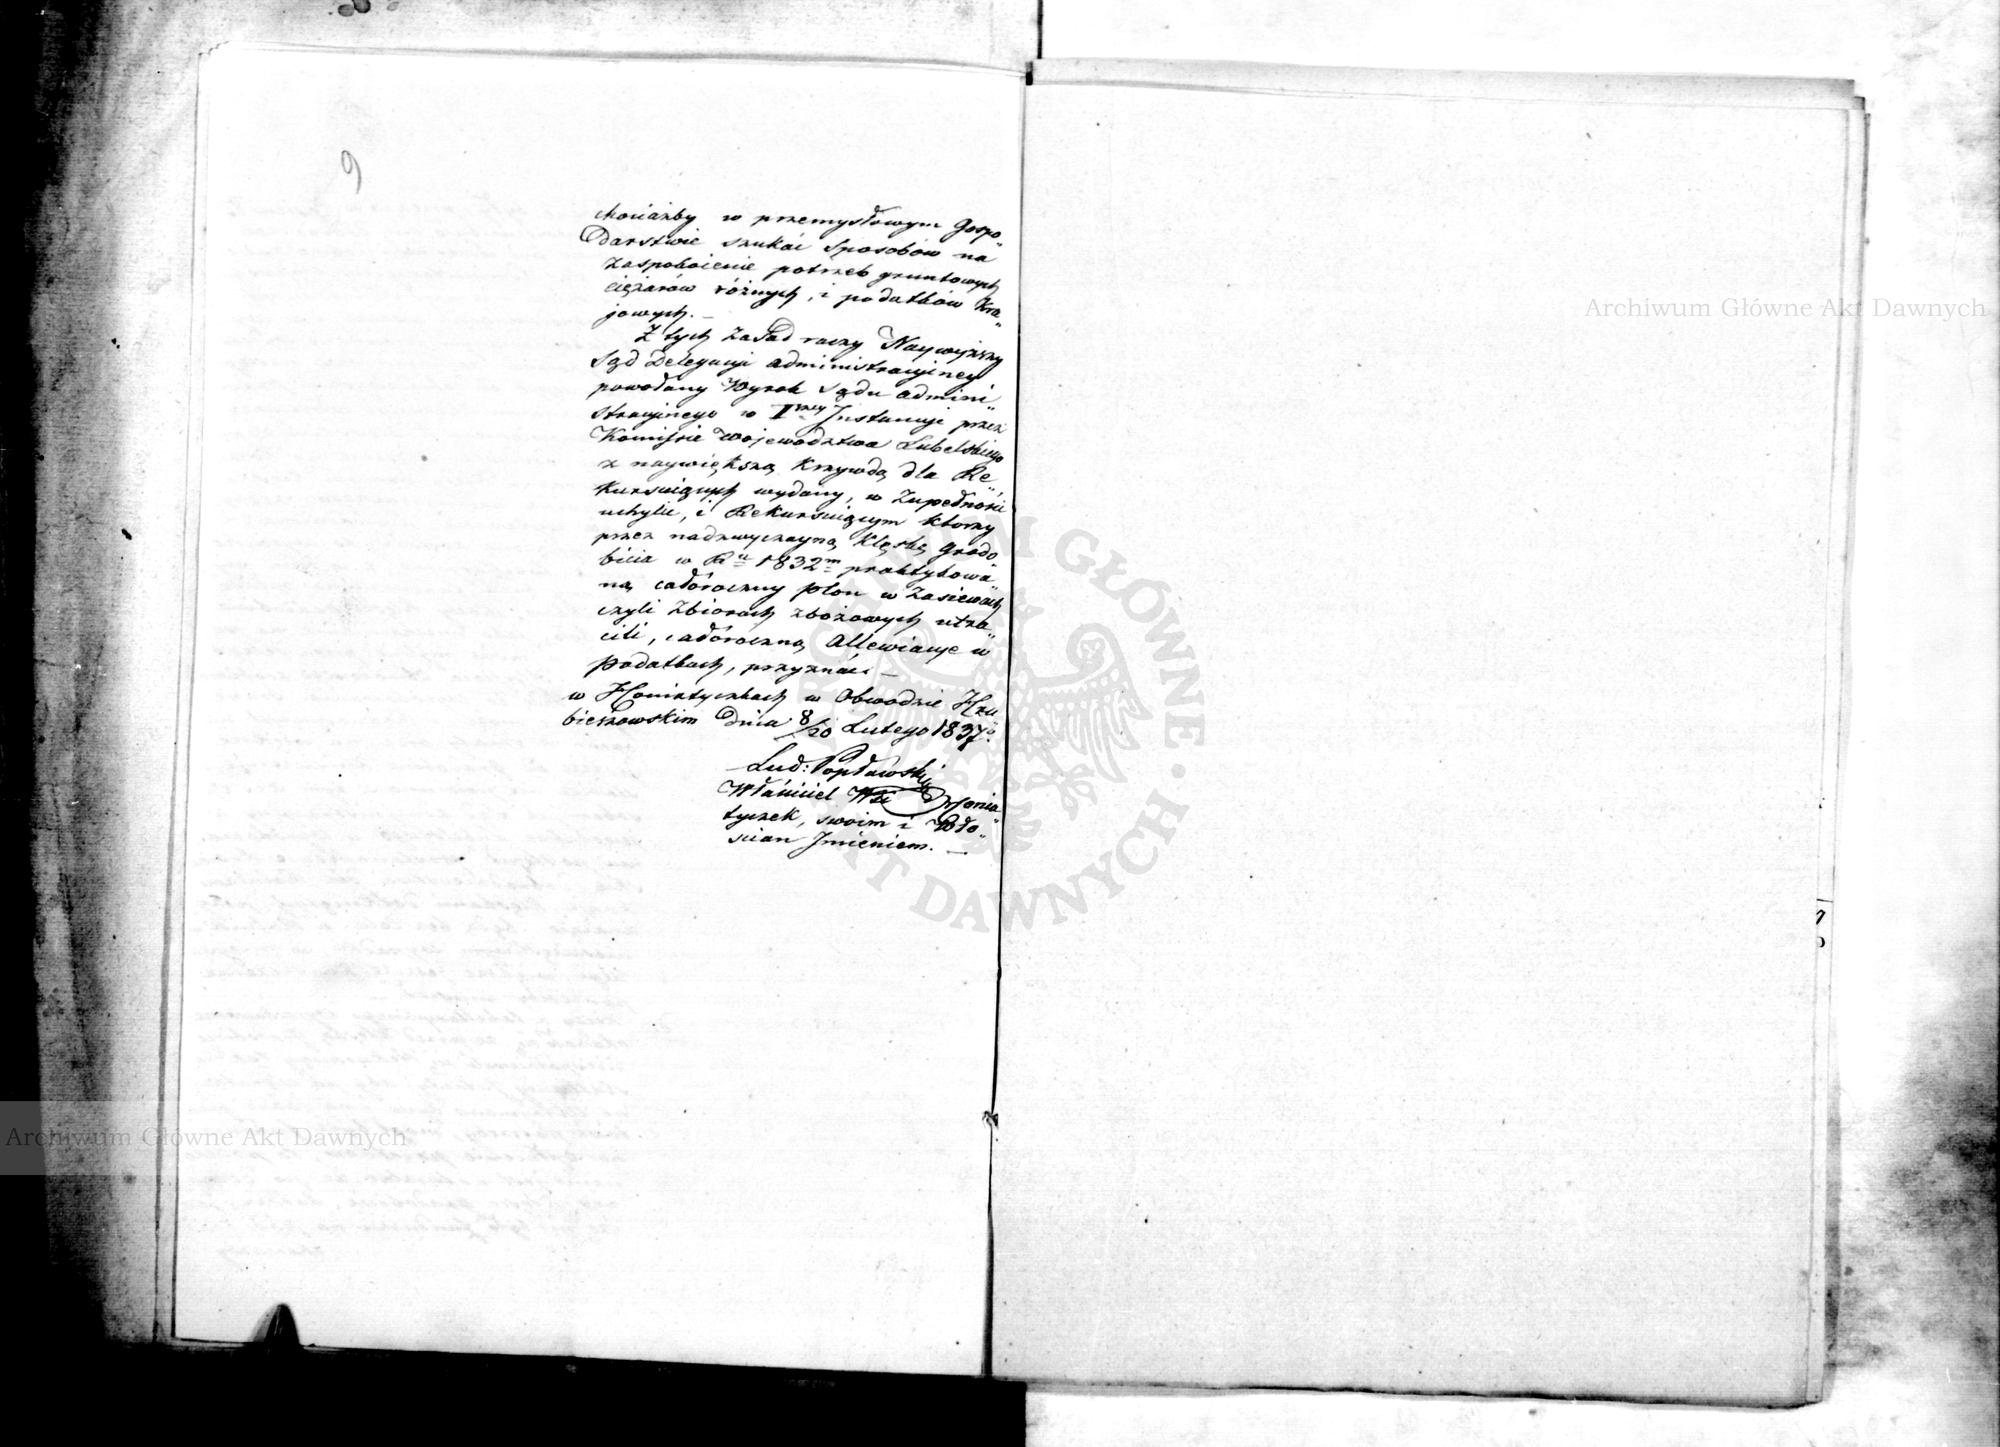 9
chociażby w przemysłowym Gospo„
Darstwie szukać sposobów na
zaspokoienie potrzeb gruntowych
ciężarów różnych, i podatków Kra„
jowych. —
Z tych zasad raczy Naywyższy
Sąd Delegacyi administracyiney
powołany Wyrok Sądu admini„
stracyinego w Iwszey Instancyi przez
Kommissie Województwa Lubelskiego
z naywiększą Krzywdą dla Re„
kursuiących wydany, w Zupełności
uchylić, i Rekursuiącym którzy
przez nadzwyczayną Klęskę grado
bicia w Ru 1832m praktykowa„
ną całóroczny plon w Zasiewach
czyli Zbiorach zbożowych utra„
cili, całóroczną Allewiacye w
podatkach, przyznać. —
w Honiatyczkach w Obwodzie Hru„
bieszowskim Dnia 8/20 Lutego 1837.
Lud: Popławski
Właściciel Wsi Honia„
tyczek, swoim i Wło„
scian Imieniem. —
Archiwum Główne Akt Dawnych
Archiwum Główne Akt Dawnych
ARCHIWUM GŁÓWNE AKT DAWNYCH